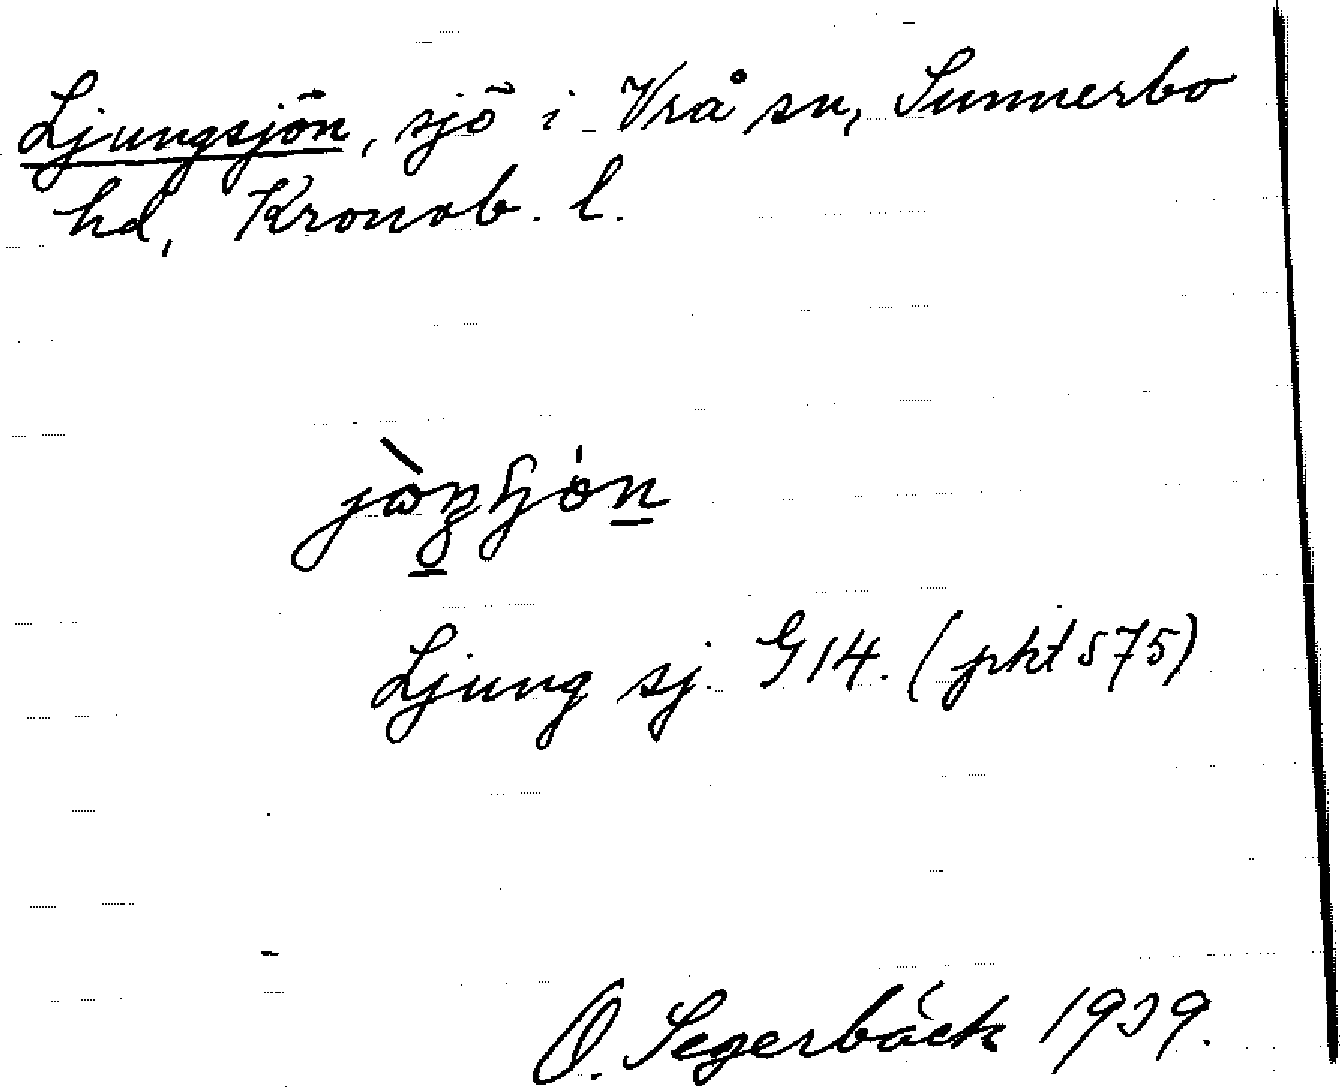 Ljungsjön, sjö i Vrå sn, Sunnerbo
hd, Kronob. l.
Ljung sj. G14. (pkt 575)
O. Segerbäck 1939.